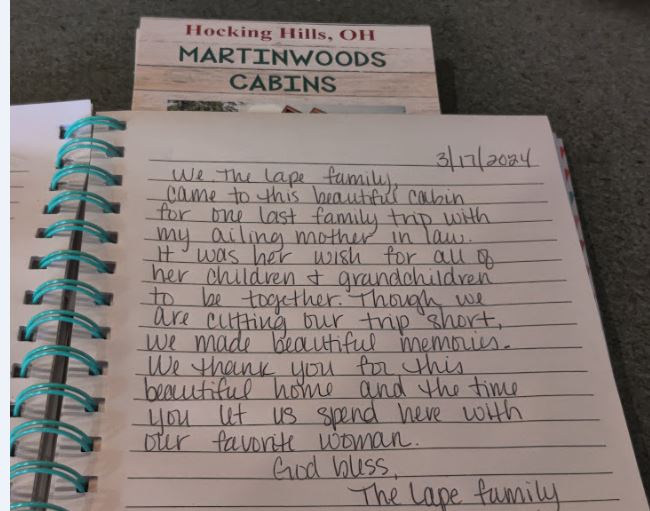 Hocking Hills, OH
MARTINWOODS
CABINS
3/17/2024
We, The Lape family,
came to this beautiful cabin
for one last family trip with
my ailing mother in law.
It was her wish for all of
her children & grandchildren
to be together. Though we
are cutting our trip short,
we made beautiful memories.
We thank you for this
beautiful home and the time
you let us spend here with
our favorite woman.
God bless,
The Lape family